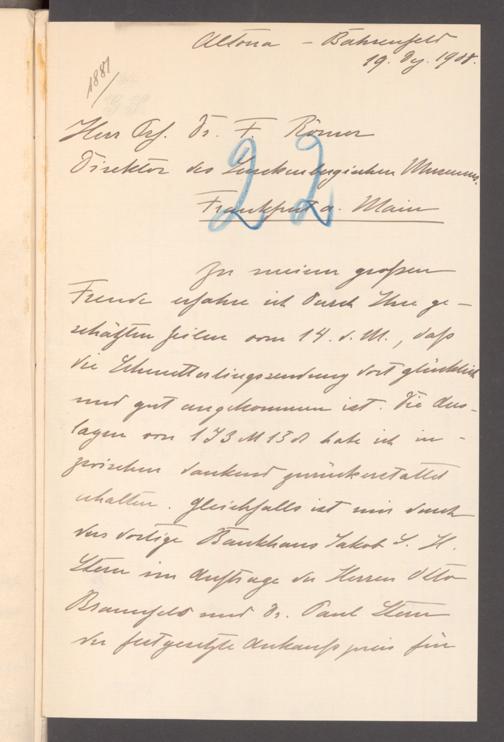 Altona – Bahrenfeld
19. Dz. 1908.
1887/
22
Herr Prof. Dr. F. Römer
Direktor des Senckenbergischen Museums,
Frankfurt a. Main
Zu meiner großen
Freude erfahre ich durch Ihre ge-
schätzten Zeilen vom 14. d. M., daß
die Schmetterlingssendung dort glücklich
und gut angekommen ist. Die Aus-
lagen von 173 M 13 ₰ habe ich in-
zwischen dankend zurückerstattet
erhalten. Gleichfalls ist mir durch
das dortige Bankhaus Jakob S. H.
Stern im Auftrage der Herren Otto
Braunfels und Dr. Paul Stern
der festgesetzte Ankaufspreis für